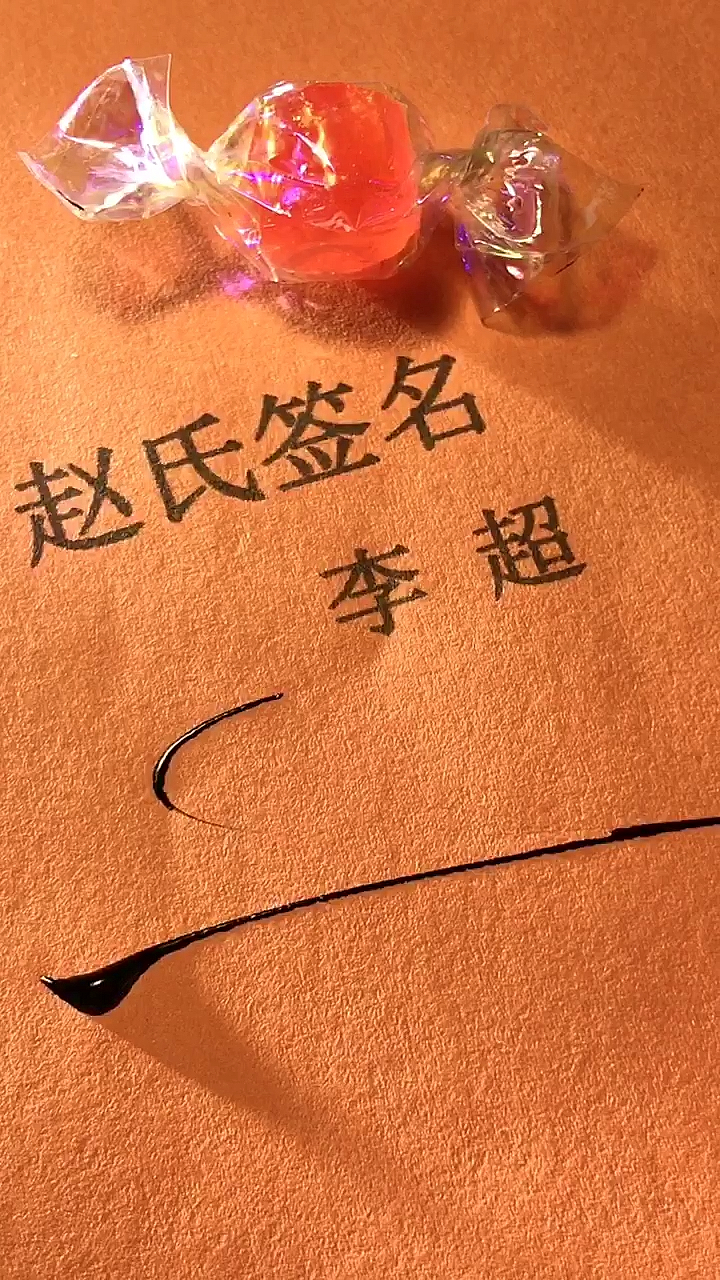 赵氏签名
李超